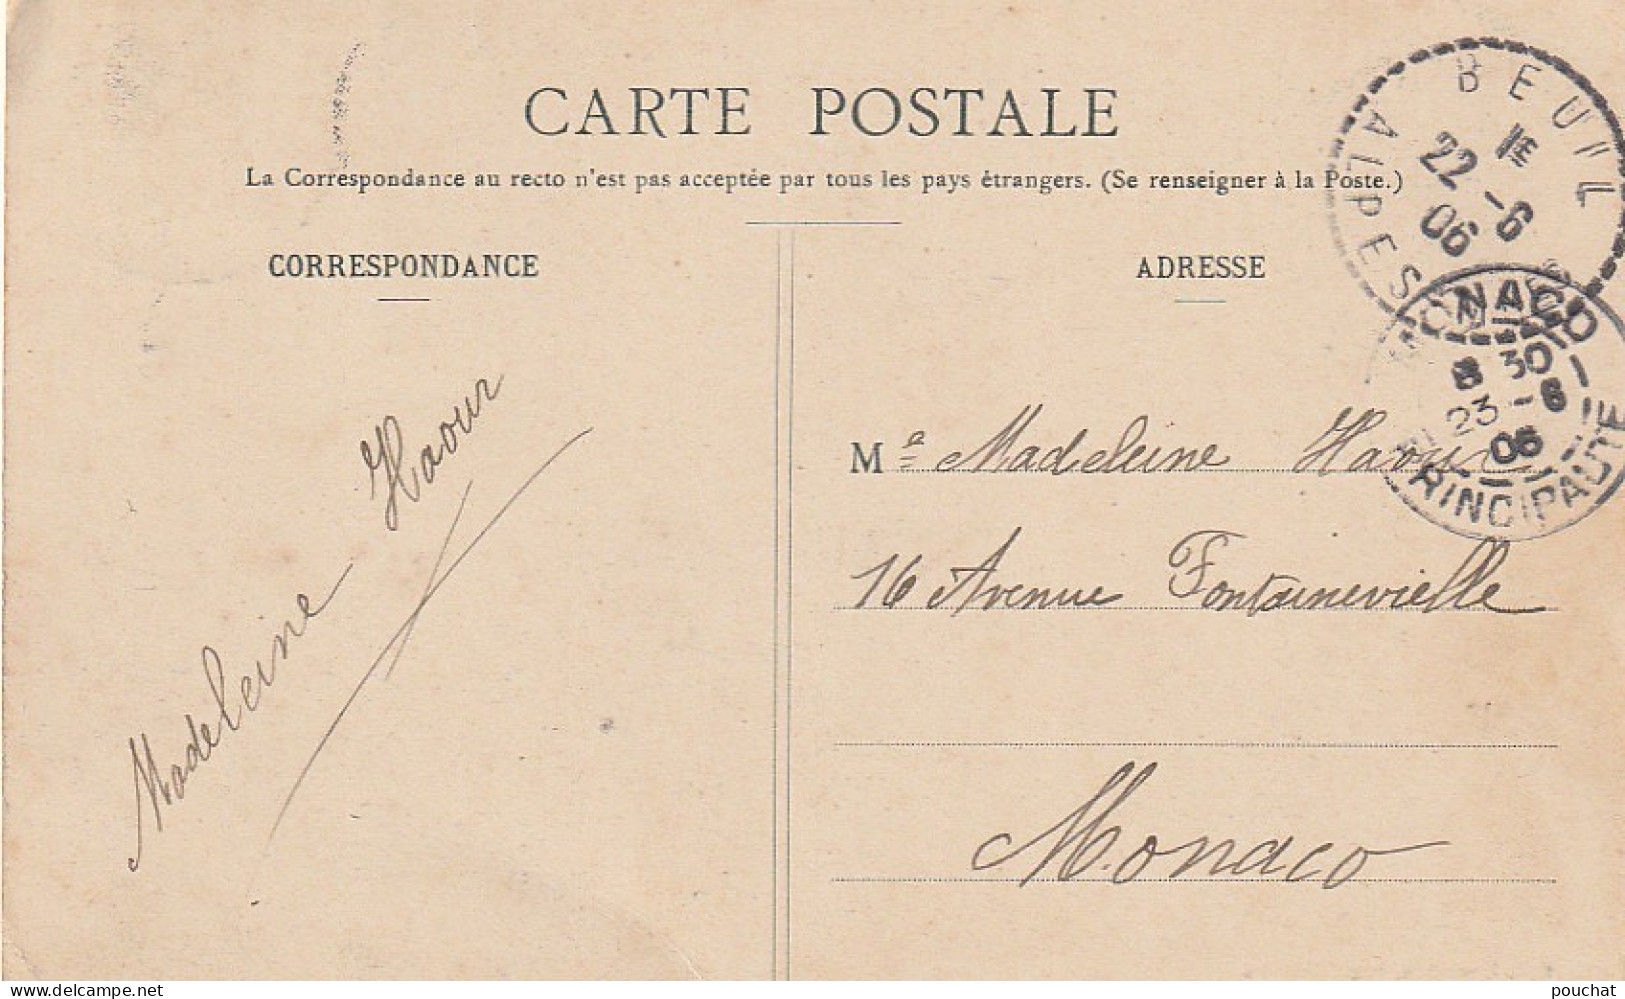 CARTE POSTALE
La Correspondance au recto n'est pas acceptée par tous les pays étrangers. (Se renseigner à la Poste.)
CORRESPONDANCE
ADRESSE
BEUIL
1E
22 -6
06
ALPES
MONACO
8 30
23 -6
06
PRINCIPAUTE
Me Madeleine Haour
16 Avenue Fontainevieille
Monaco
Madeleine Haour
www.delcampe.net
pouchat